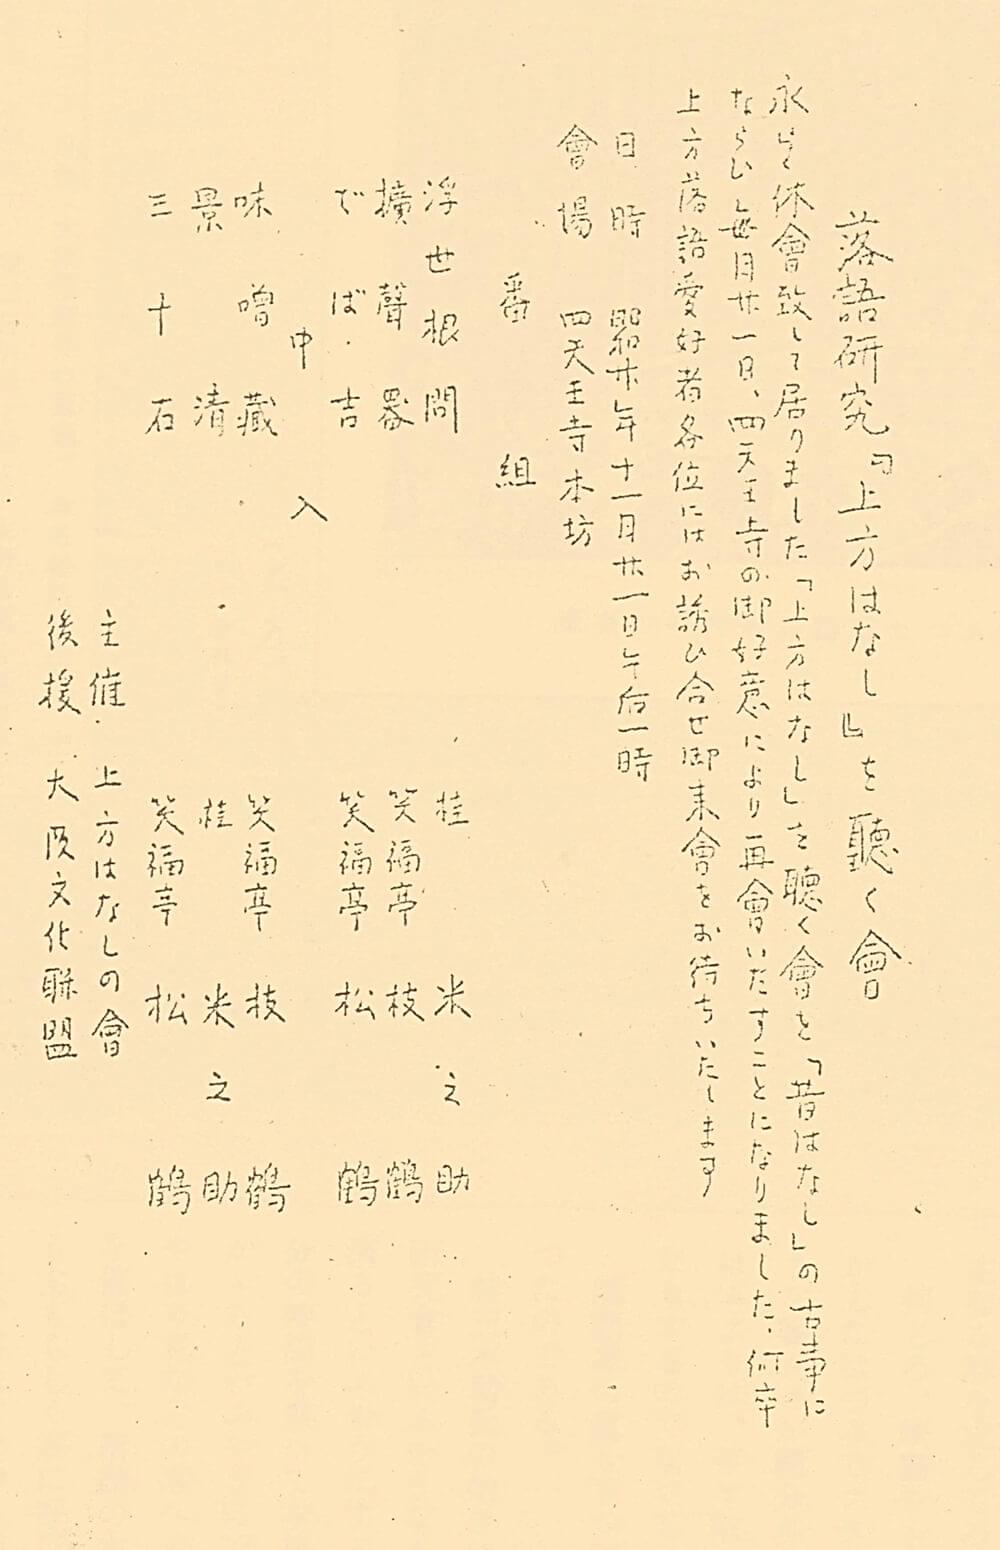 落語研究『上方はなし』を聽く會
永らく休會致して居りました「上方はなし」を聽く會を「昔はなし」の古事に
ならひ毎月廿一日、四天王寺の御好意により再會いたすことになりました、何卒
上方落語愛好者各位にはお誘ひ合せ御来會をお待ちいたします
日時 昭和廿年十一月廿一日午后一時
會場 四天王寺本坊
番組
浮世根問 桂米之助
擴聲器 笑福亭枝鶴
でば吉 笑福亭松鶴
中入
味噌藏 笑福亭枝鶴
景清 桂米之助
三十石 笑福亭松鶴
主催 上方はなしの會
後援 大阪文化聯盟